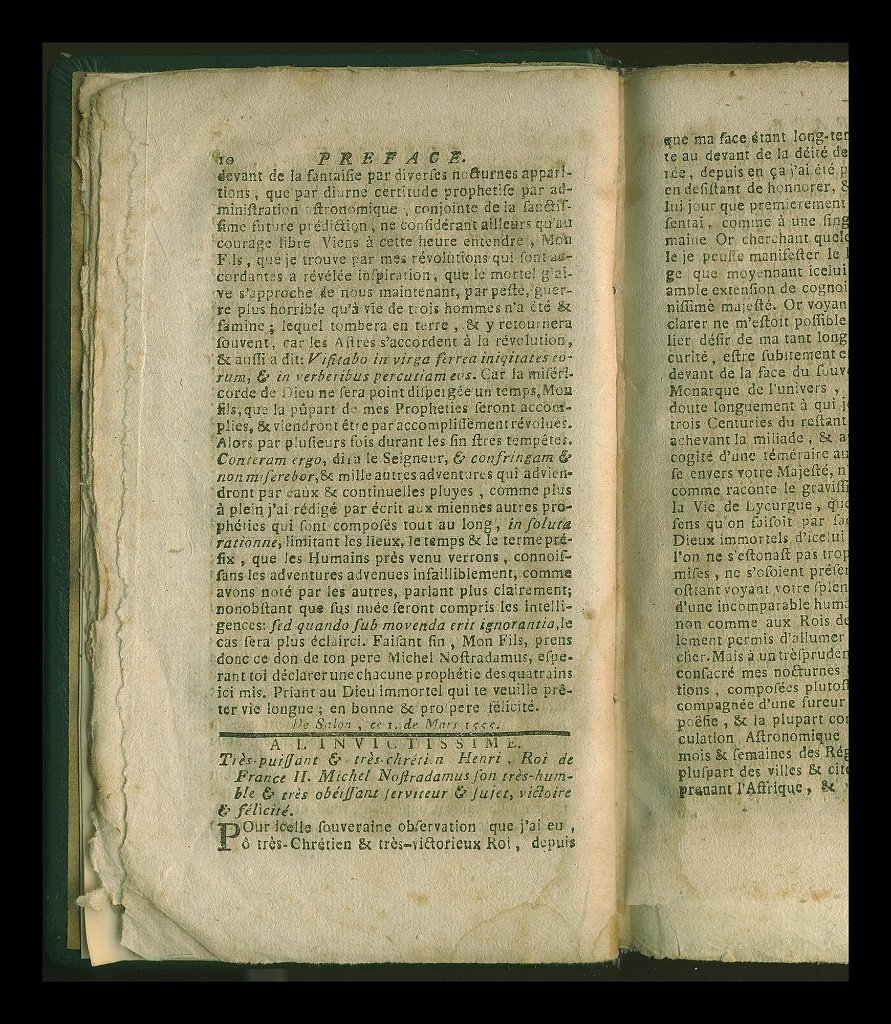 10 PREFACE.
devant de la fantaisie par diverſes nocturnes appari-
tions, que par diurne certitude prophetiſe par ad-
miniſtration aſtronomique, conjointe de la ſanctiſ-
ſime future prédiction, ne conſidérant ailleurs qu'au
courage libre Viens à cette heure entendre, Mon
Fils, que je trouve par mes révolutions qui ſont ac-
cordantes a révélée inſpiration, que le mortel g'ai-
ve s'approche de nous maintenant, par peſte, guer-
re plus horrible qu'à vie de trois hommes n'a été &
famine; lequel tombera en terre, & y retournera
ſouvent, car les Aſtres s'accordent à la révolution,
& auſſi a dit: Viſitabo in virga ferrea iniqitates eo-
rum, & in verberibus percutiam eos. Car la miſéri-
corde de Dieu ne ſera point diſpergée un temps, Mon
fils, que la pûpart de mes Propheties ſeront accom-
plies, & viendront être par accompliſſement révolues.
Alors par pluſieurs fois durant les ſin ſtres tempêtes.
Conteram ergo, dira le Seigneur, & confringam &
non miſerebor, & mille autres adventures qui advien-
dront par eaux & continuelles pluyes, comme plus
à plein j'ai rédigé par écrit aux miennes autres pro-
phéties qui ſont compoſés tout au long, in ſoluta
rationne, limitant les lieux, le temps & le terme pré-
fix, que les Humains près venu verrons, connoiſ-
ſans les adventures advenues infailliblement, comme
avons noté par les autres, parlant plus clairement;
nonobſtant que ſus nuée ſeront compris les intelli-
gences: ſed quando ſub movenda erit ignorantia, le
cas ſera plus éclairci. Faiſant fin, Mon Fils, prens
donc ce don de ton pere Michel Noſtradamus, eſpe-
rant toi déclarer une chacune prophétie des quatrains
ici mis. Priant au Dieu immortel qui te veuille prê-
ter vie longue; en bonne & proſpere félicité.
De Salon, ce 1. de Mars 1555.
A L'INVICTISSIME.
Très-puiſſant & très-chrétien Henri, Roi de
France II. Michel Noſtradamus ſon très-hum-
ble & très obéiſſant ſerviteur & ſujet, victoire
& félicité.
POur icelle ſouveraine obſervation que j'ai eu,
ô très-Chrétien & très-victorieux Roi, depuis
que ma face étant long-tem
te au devant de la déité de
rée, depuis en ça j'ai été p
en deſiſtant de honnorer, &
lui jour que premierement
ſentai, comme à une ſing
maine Or cherchant quelq
le je peuſſe manifeſter le
ge que moyennant icelui
ample extenſion de cognoi
niſſimè majeſté. Or voyan
clarer ne m'eſtoit poſſible
lier déſir de ma tant long
curité, eſtre ſubitement e
devant de la face du ſouv
Monarque de l'univers,
doute longuement à qui j
trois Centuries du reſtant
achevant la miliade, & a
cogité d'une téméraire au
ſe envers votre Majeſté, n'
comme raconte le graviſſi
la Vie de Lycurgue, que
ſens qu'on faiſoit par ſac
Dieux immortels d'icelui
l'on ne s'eſtonaſt pas trop
miſes, ne s'oſoient préſer
oſtant voyant votre ſplen
d'une incomparable huma
non comme aux Rois de
lement permis d'allumer
cher. Mais à un trèſpruden
conſacré mes nocturnes
tions, compoſées plutoſt
compagnée d'une fureur
poëſie, & la plupart con
culation Aſtronomique
mois & ſemaines des Rég
pluſpart des villes & cité
prenant l'Affrique, &